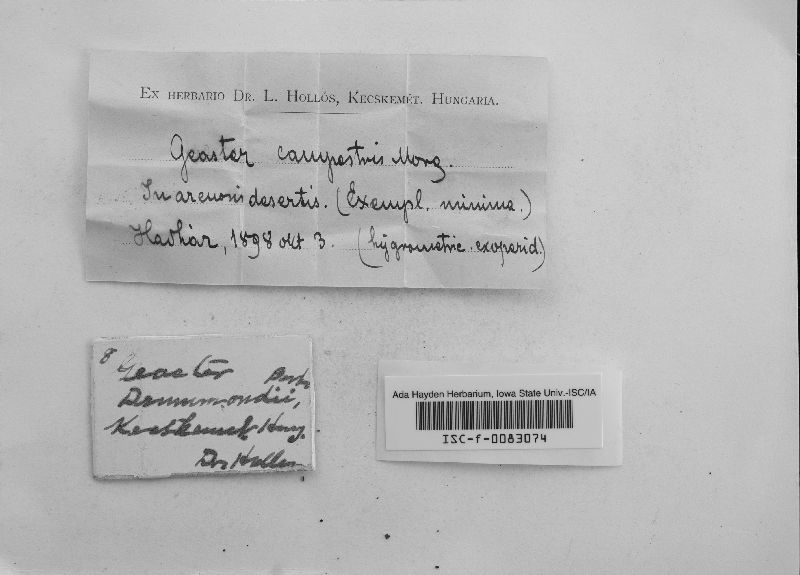 EX HERBARIO DR. L. HOLLÓS, KECSKEMÉT, HUNGARIA.
Geaster campestris Morg.
In arenosis desertis. (Exempl. minima.)
1898 okt 3. (hygrometric. exoperid.)
8 Geaster
Drummondii,
Kecskemet Hung.
Dr Hollos
Ada Hayden Herbarium, Iowa State Univ.-ISC/IA
ISC-f-0083074